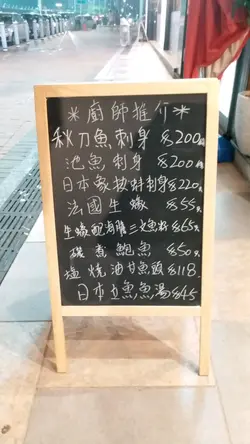 *廚師推介*
秋刀魚刺身 $200
池魚刺身 $200
日本象拔蚌刺身$220
法國生蠔 $55
生蠔配海膽三文魚籽$65
鮑魚 $50
塩燒油甘魚頭 $118
日本魚湯$45